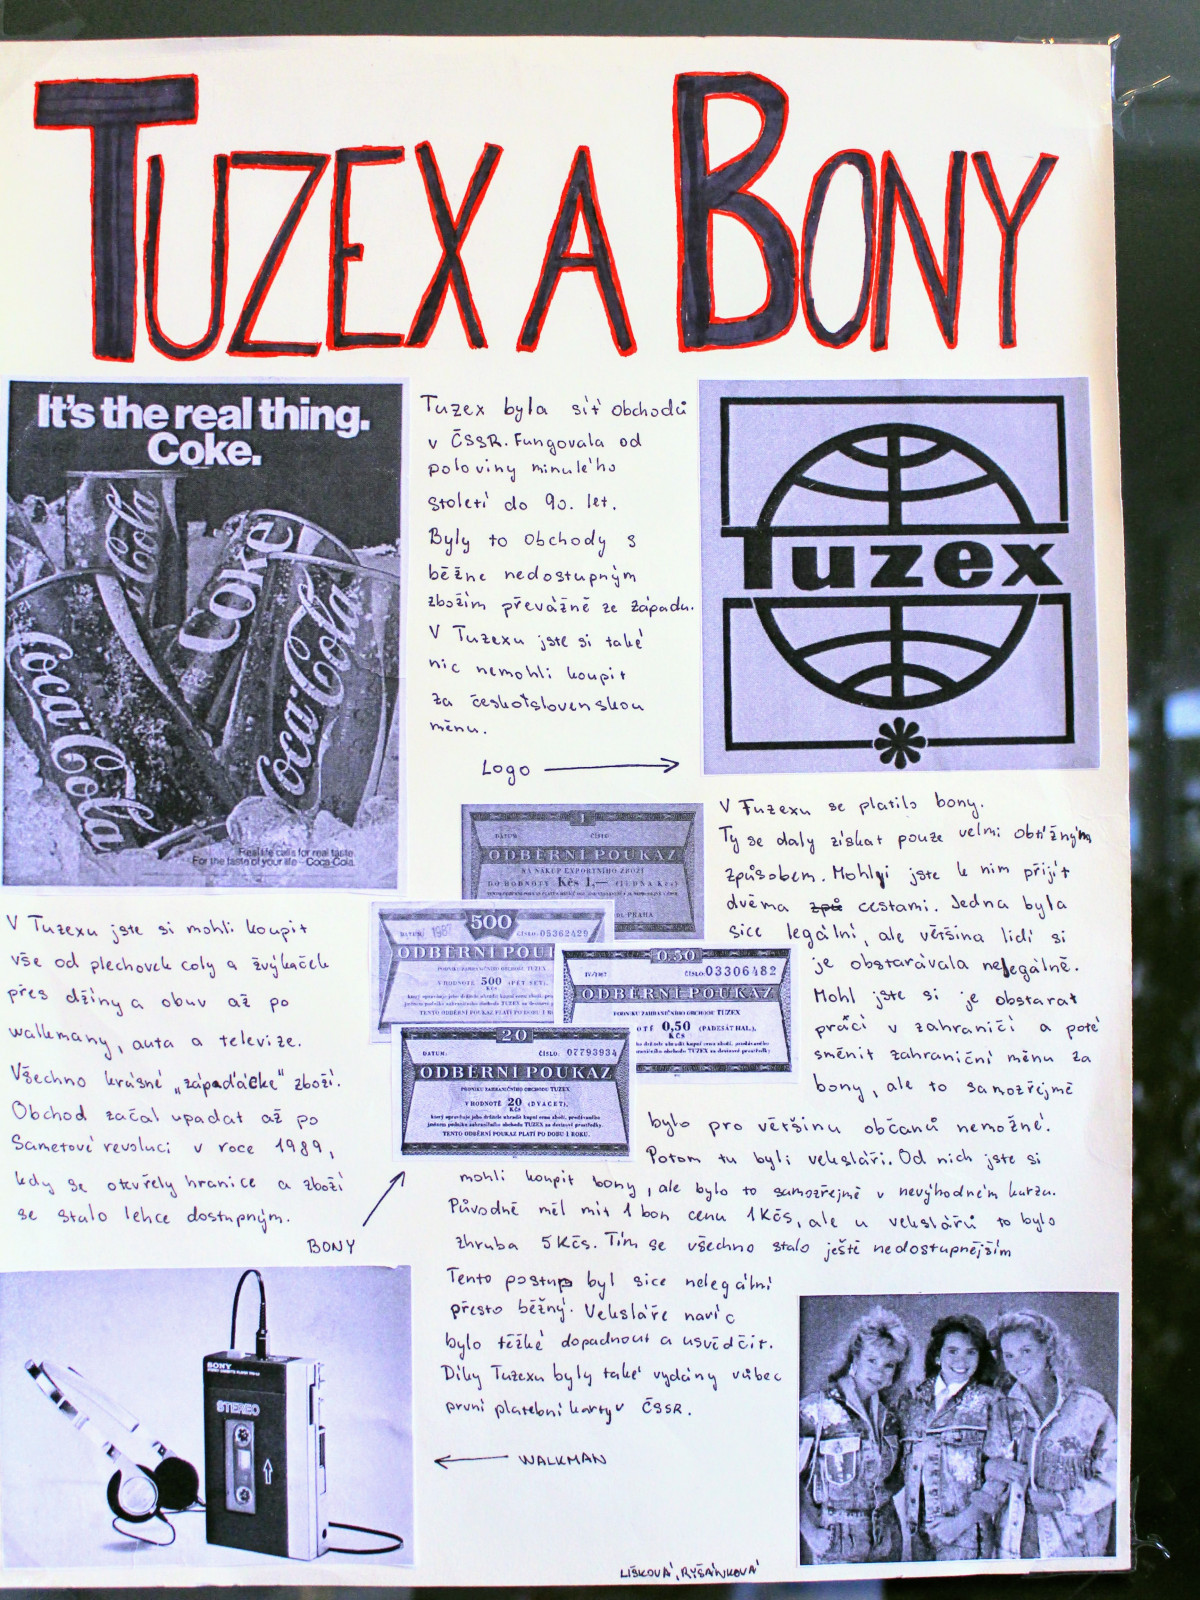 TUZEX A BONY
It's the real thing.
Coke.
Coca-Cola
Coke
Coca-Cola
Coca-Cola
Real life calls for real taste.
For the taste of your life - Coca-Cola.
Tuzex byla síť obchodů
v ČSSR. Fungovala od
poloviny minulého
století do 90. let.
Byly to obchody s
běžne nedostupným
zbožím převážně ze západu.
V Tuzexu jste si také
nic nemohli koupit
za československou
měnu.
Logo
Tuzex
V Tuzexu se platilo bony.
Ty se daly získat pouze velmi obtížným
způsobem. Mohli jste k nim přijít
dvěma cestami. Jedna byla
sice legální, ale většina lidí si
je obstarávala nelegálně.
Mohl jste si je obstarat
prácí v zahraničí a poté
směnit zahraniční měnu za
bony, ale to samozřejmě
bylo pro většinu občanů nemožné.
Potom tu byli veksláři. Od nich jste si
mohli koupit bony, ale bylo to samozřejmě v nevýhodném kurzu.
Původně měl mít 1 bon cenu 1Kčs, ale u vekslářů to bylo
zhruba 5Kčs. Tím se všechno stalo ještě nedostupnějším
Tento postup byl sice nelegální
přesto běžný. Veksláře navíc
bylo těžké dopadnout a usvědčit.
Díky Tuzexu byly také vydány vůbec
první platební karty v ČSSR.
1
DATUM ČÍSLO
ODBĚRNÍ POUKAZ
NA NÁKUP EXPORTNÍHO ZBOŽÍ
DO HODNOTY Kčs 1,— (JEDNA Kčs)
PRAHA
500
DATUM: 1987 ČÍSLO: 05362429
ODBĚRNÍ POU
PODNIKU ZAHRANIČNÍHO OBCHODU TUZEX
V HODNOTĚ 500 (PĚT SET),
Kčs
TENTO ODBĚRNÍ POUKAZ PLATÍ PO DOBU
0,50
ČÍSLO 03306482
ODBĚRNÍ POUKAZ
PODNIKU ZAHRANIČNÍHO OBCHODU TUZEX
OTĚ 0,50 (PADESÁT HAL.),
Kčs
20
DATUM: ČÍSLO: 07793934
ODBĚRNÍ POUKAZ
PODNIKU ZAHRANIČNÍHO OBCHODU TUZEX
V HODNOTĚ 20 (DVACET),
Kčs
který opravňuje jeho držitele uhradit kupní cenu zboží, prodávaného
jménem podniku zahraničního obchodu TUZEX za devizové prostředky.
TENTO ODBĚRNÍ POUKAZ PLATÍ PO DOBU 1 ROKU.
V Tuzexu jste si mohli koupit
vše od plechovek coly a žvýkaček
přes džíny a obuv až po
walkmany, auta a televize.
Všechno krásné „západácke" zboží.
Obchod začal upadat až po
Sametové revoluci v roce 1989,
kdy se otevřely hranice a zboží
se stalo lehce dostupným.
BONY
SONY
STEREO
WALKMAN
LIŠKOVÁ, RYŠÁNKOVÁ